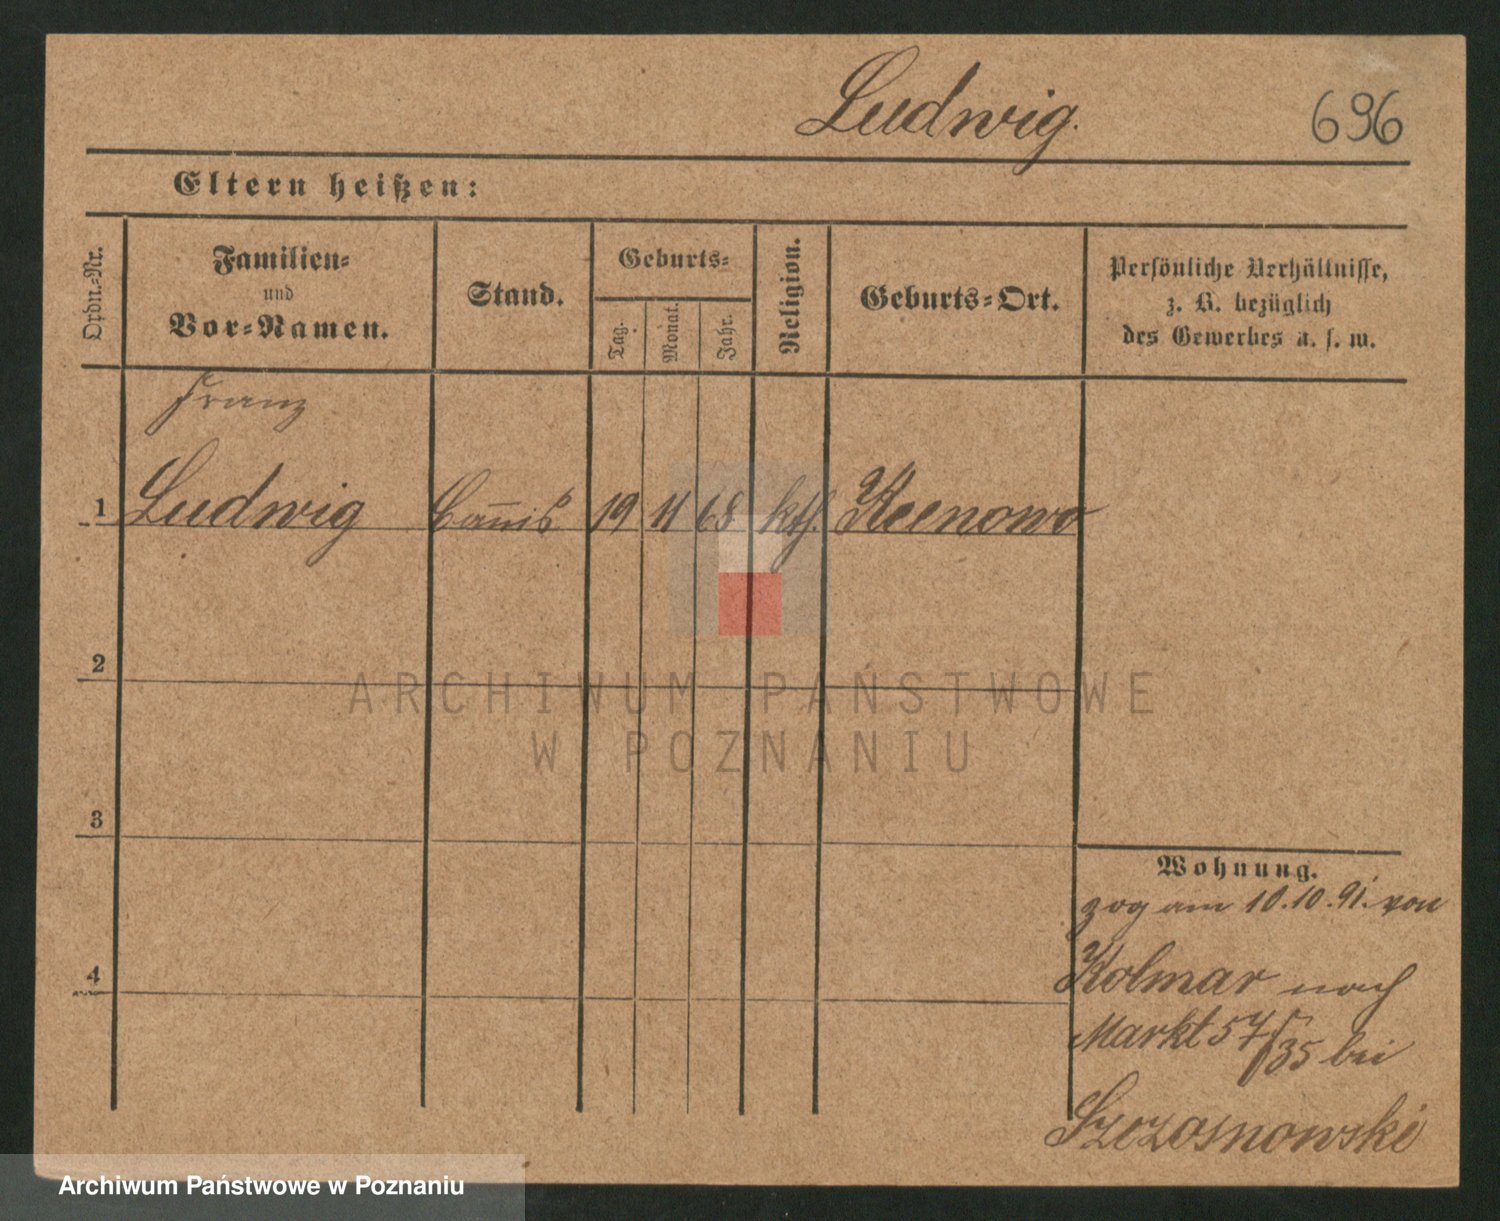 Ludwig.
696
Eltern heißen:
Ordn.-Nr.
Familien-
und
Vor-Namen.
Stand.
Geburts-
Tag.
Monat.
Jahr.
Religion.
Geburts-Ort.
Persönliche Verhältnisse,
z. B. bezüglich
des Gewerbes u. s. w.
Franz
1 Ludwig Com̅is 19 11 68 kth.
2
3
4
Wohnung.
zog am 10.10.91. von
Kolmar nach
Markt 57/35 bei
ARCHIWUM PAŃSTWOWE
W POZNANIU
Archiwum Państwowe w Poznaniu